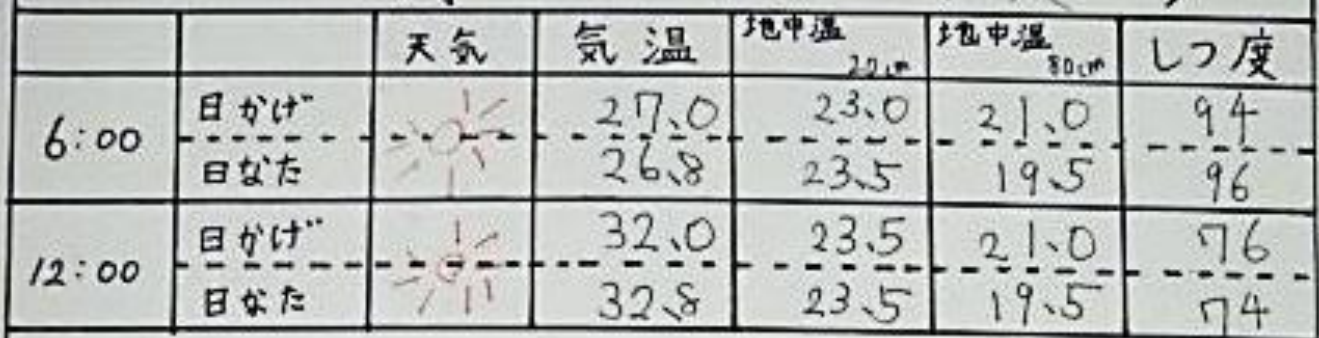 天気 気温 地中温 20cm 地中温 80cm しつ度
6:00 日かげ 27.0 23.0 21.0 94
日なた 26.8 23.5 19.5 96
12:00 日かげ 32.0 23.5 21.0 76
日なた 32.8 23.5 19.5 74